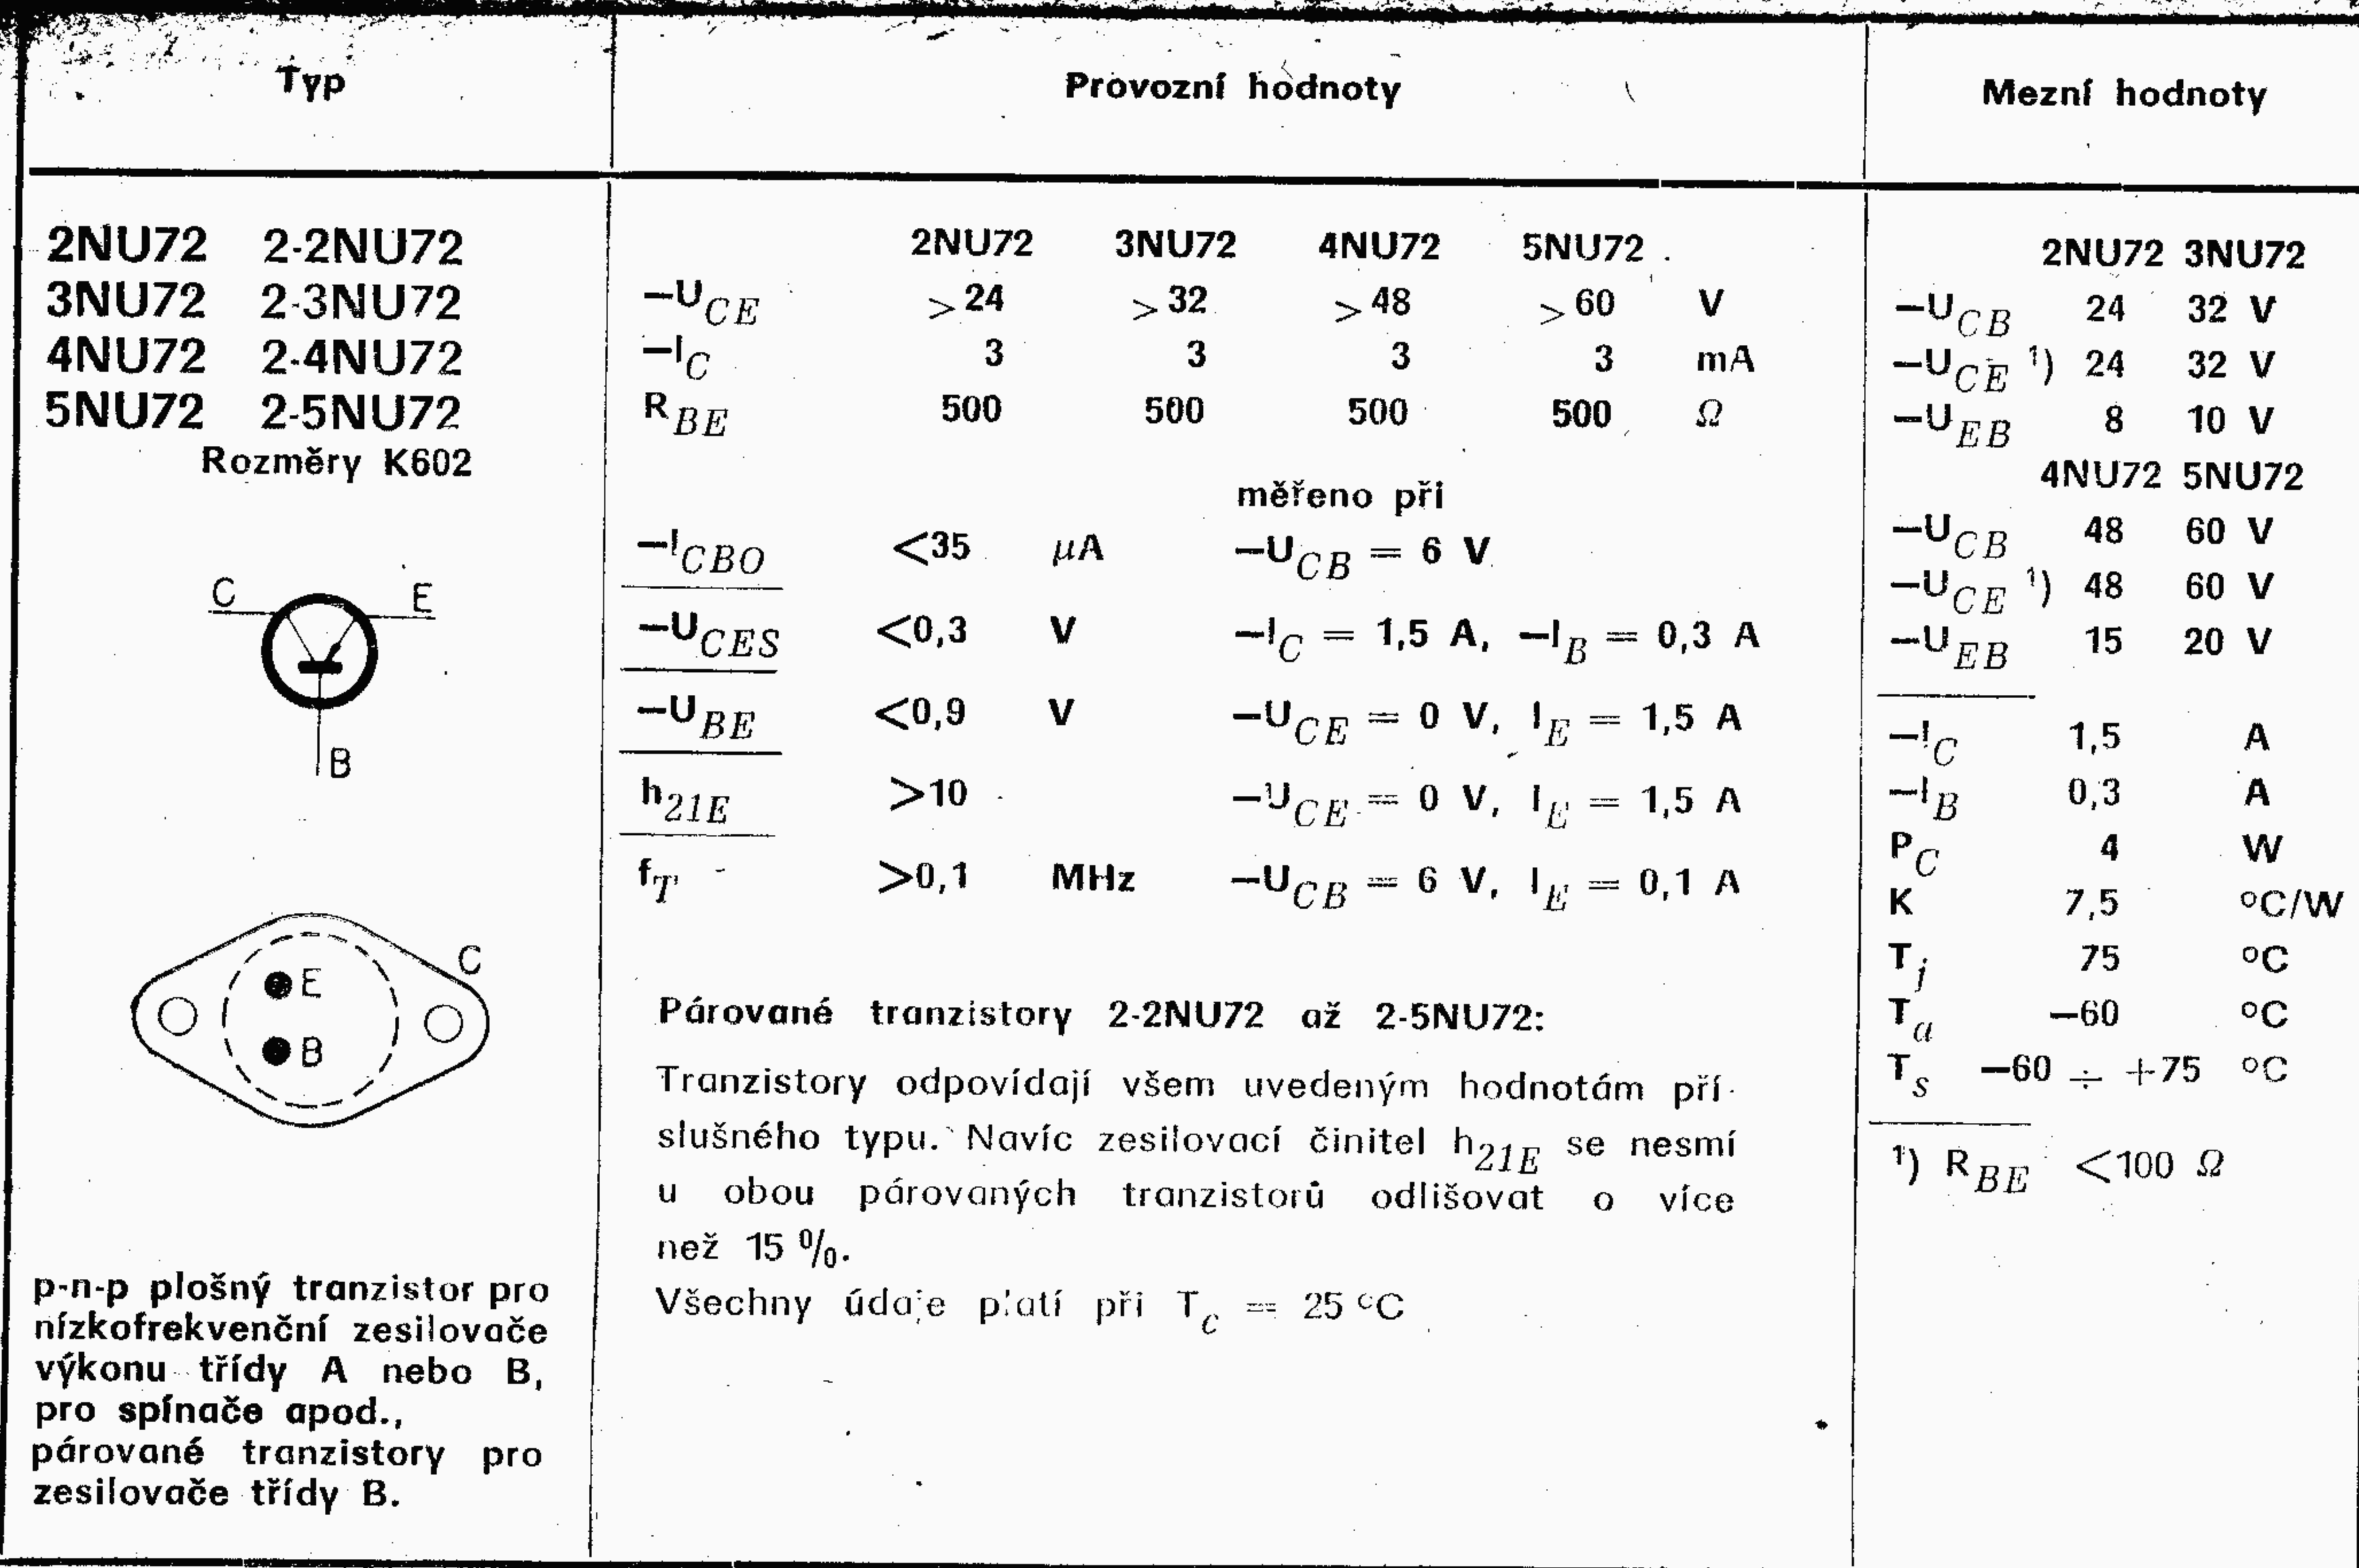 Typ
Provozní hodnoty
Mezní hodnoty
2NU72 2-2NU72
3NU72 2-3NU72
4NU72 2-4NU72
5NU72 2-5NU72
Rozměry K602
C E
B
C
E
B
p-n-p plošný tranzistor pro
nízkofrekvenční zesilovače
výkonu třídy A nebo B,
pro spínače apod.,
párované tranzistory pro
zesilovače třídy B.
2NU72 3NU72 4NU72 5NU72
—U_CE >24 >32 >48 >60 V
—I_C 3 3 3 3 mA
R_BE 500 500 500 500 Ω
měřeno při
—I_CBO <35 μA —U_CB = 6 V
—U_CES <0,3 V —I_C = 1,5 A, —I_B = 0,3 A
—U_BE <0,9 V —U_CE = 0 V, I_E = 1,5 A
h_21E >10 —U_CE = 0 V, I_E = 1,5 A
f_T >0,1 MHz —U_CB = 6 V, I_E = 0,1 A
Párované tranzistory 2-2NU72 až 2-5NU72:
Tranzistory odpovídají všem uvedeným hodnotám pří-
slušného typu. Navíc zesilovací činitel h_21E se nesmí
u obou párovaných tranzistorů odlišovat o více
než 15 %.
Všechny údaje platí při T_c = 25 °C
2NU72 3NU72
—U_CB 24 32 V
—U_CE ¹) 24 32 V
—U_EB 8 10 V
4NU72 5NU72
—U_CB 48 60 V
—U_CE ¹) 48 60 V
—U_EB 15 20 V
—I_C 1,5 A
—I_B 0,3 A
P_C 4 W
K 7,5 °C/W
T_j 75 °C
T_a —60 °C
T_s —60 ÷ +75 °C
¹) R_BE <100 Ω